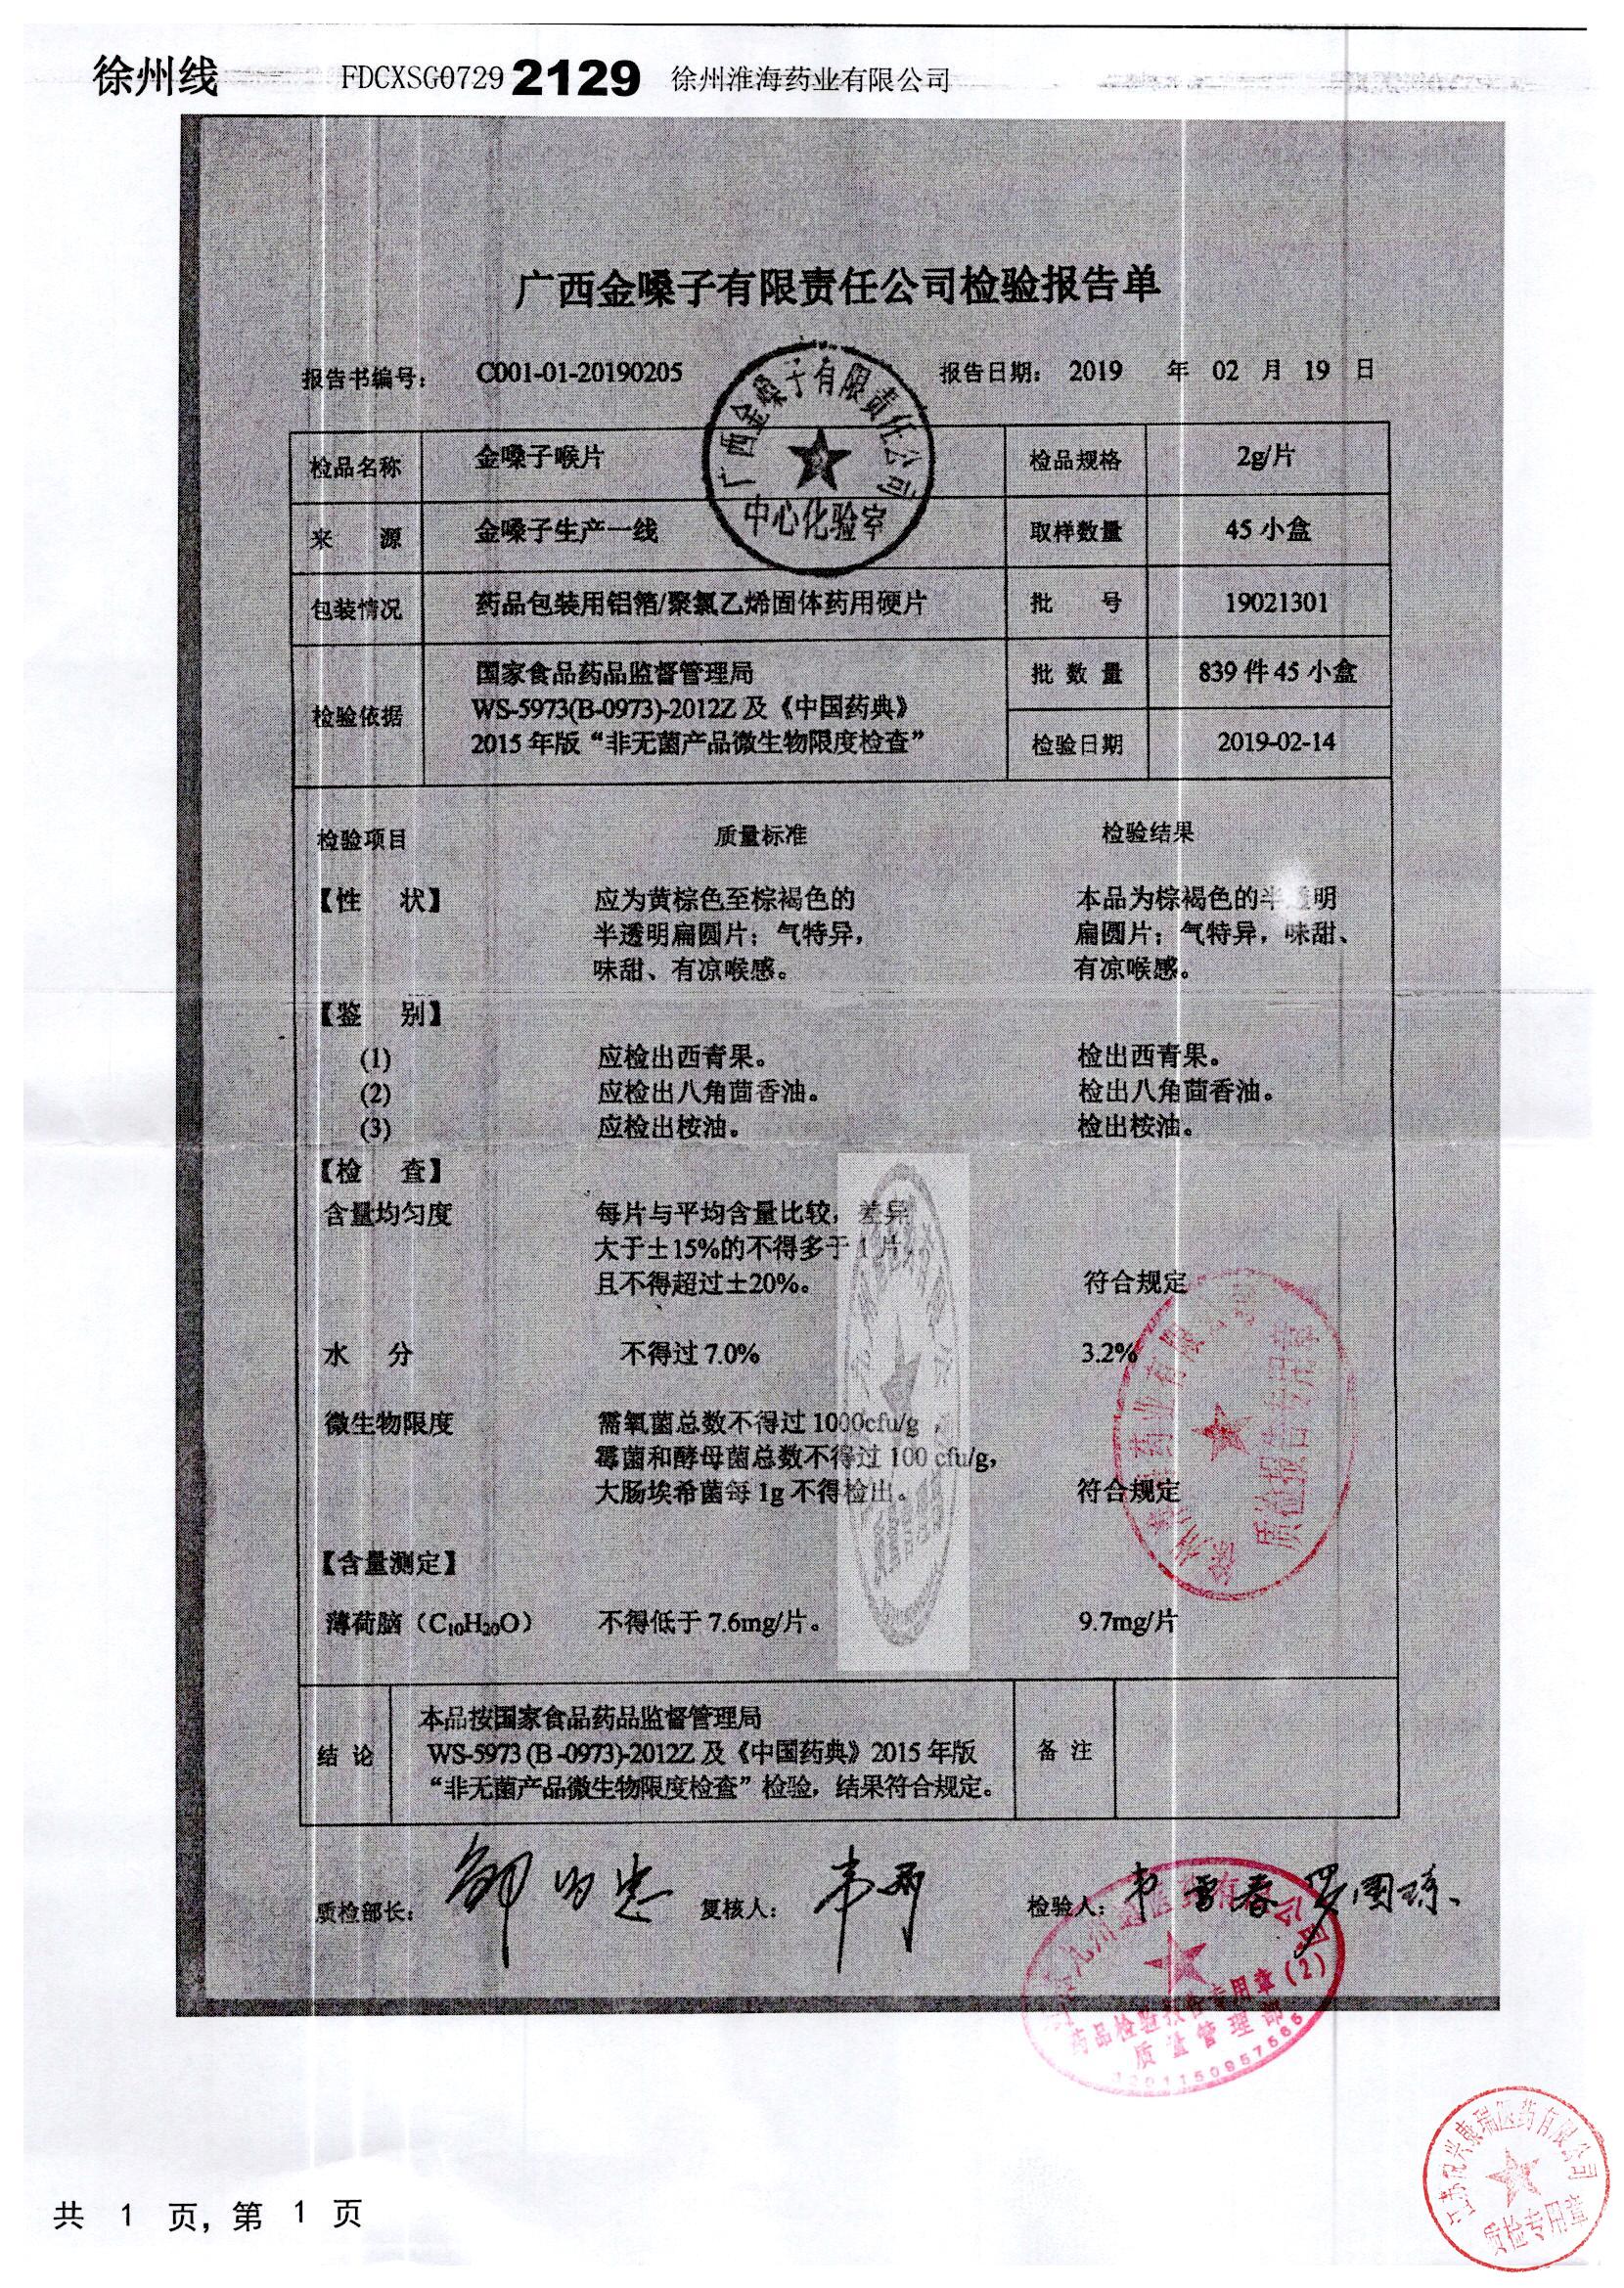 徐州线 FDCXSG0729 2129 徐州淮海药业有限公司
广西金嗓子有限责任公司检验报告单
报告书编号： C001-01-20190205 报告日期： 2019 年 02 月 19 日
广西金嗓子有限责任公司
中心化验室
检品名称 金嗓子喉片 检品规格 2g/片
来 源 金嗓子生产一线 取样数量 45 小盒
包装情况 药品包装用铝箔/聚氯乙烯固体药用硬片 批 号 19021301
检验依据 国家食品药品监督管理局 批 数 量 839 件 45 小盒
WS-5973(B-0973)-2012Z 及《中国药典》
2015 年版“非无菌产品微生物限度检查” 检验日期 2019-02-14
检验项目 质量标准 检验结果
【性 状】 应为黄棕色至棕褐色的 本品为棕褐色的半透明
半透明扁圆片；气特异， 扁圆片；气特异，味甜、
味甜、有凉喉感。 有凉喉感。
【鉴 别】
(1) 应检出西青果。 检出西青果。
(2) 应检出八角茴香油。 检出八角茴香油。
(3) 应检出桉油。 检出桉油。
【检 查】
含量均匀度 每片与平均含量比较，差异
大于±15%的不得多于 1 片，
且不得超过±20%。 符合规定
水 分 不得过 7.0% 3.2%
微生物限度 需氧菌总数不得过 1000cfu/g ，
霉菌和酵母菌总数不得过 100 cfu/g，
大肠埃希菌每 1g 不得检出。 符合规定
徐州淮海药业有限公司
质检报告专用章
【含量测定】
薄荷脑（C10H20O） 不得低于 7.6mg/片。 9.7mg/片
结 论 本品按国家食品药品监督管理局 备 注
WS-5973 (B -0973)-2012Z 及《中国药典》2015 年版
“非无菌产品微生物限度检查”检验，结果符合规定。
质检部长： 复核人： 韦 检验人： 韦 春 罗国琼
药品检验报告专用章(2)
质量管理部
江苏 兴康瑞医药有限公司
质检专用章
共 1 页，第 1 页